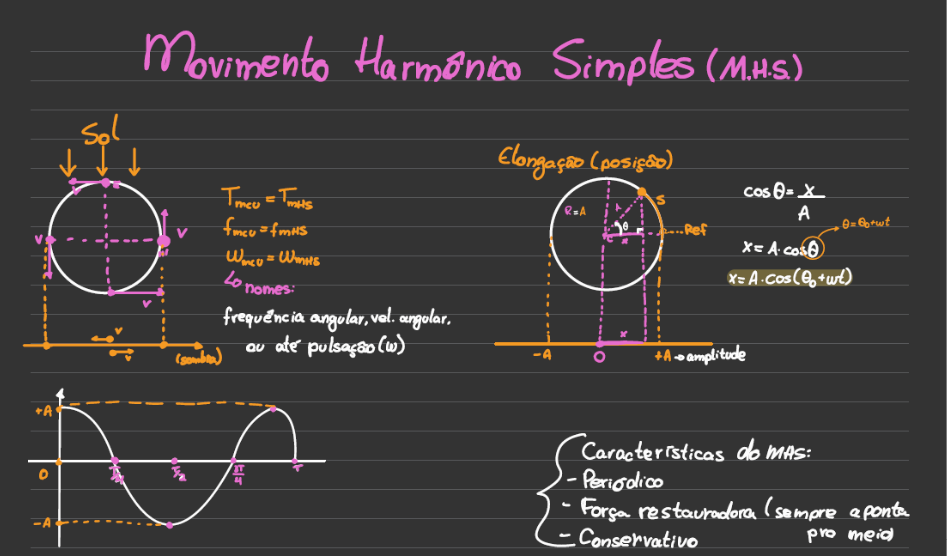 Movimento Harmônico Simples (M.H.S.)
Sol
v
v
v
v
v
(sombra)
Tmcu = TmHS
fmcu = fmHS
ωmcu = ωmHS
↳ nomes:
frequência angular, vel. angular,
ou até pulsação (ω)
Elongação (posição)
R=A
A
θ
S
C
x
Ref
x
-A
O
+A → amplitude
cosθ = x/A
θ=θ₀+ωt
x = A·cosθ
x = A·cos(θ₀+ωt)
+A
O
-A
T/4
T/2
3T/4
T
Características do MHS:
- Periódico
- Força restauradora (sempre aponta
pro meio)
- Conservativo